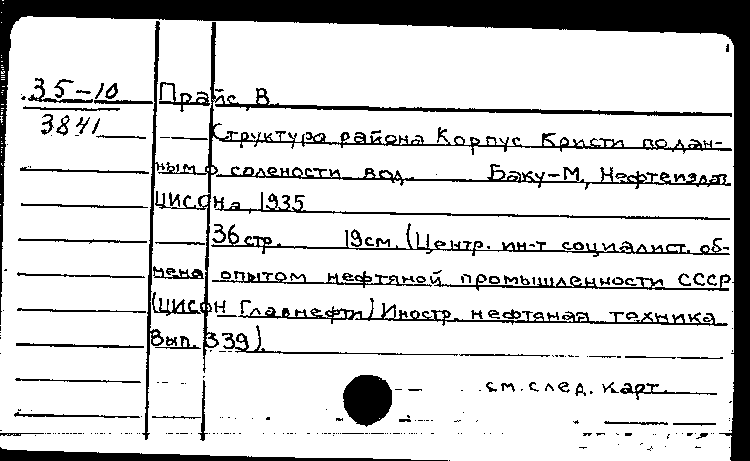 35-10
3841
Прайс, В.
Структура района Корпус Кристи по дан-
ным о солености вод. Баку-М, Нефтеиздат
ЦИСОНа, 1935
36 стр. 19 см. (Центр. ин-т социалист. об-
мена опытом нефтяной промышленности СССР
(ЦИСОН Главнефти) Иностр. нефтяная техника
Вып. 339).
см. след. карт.